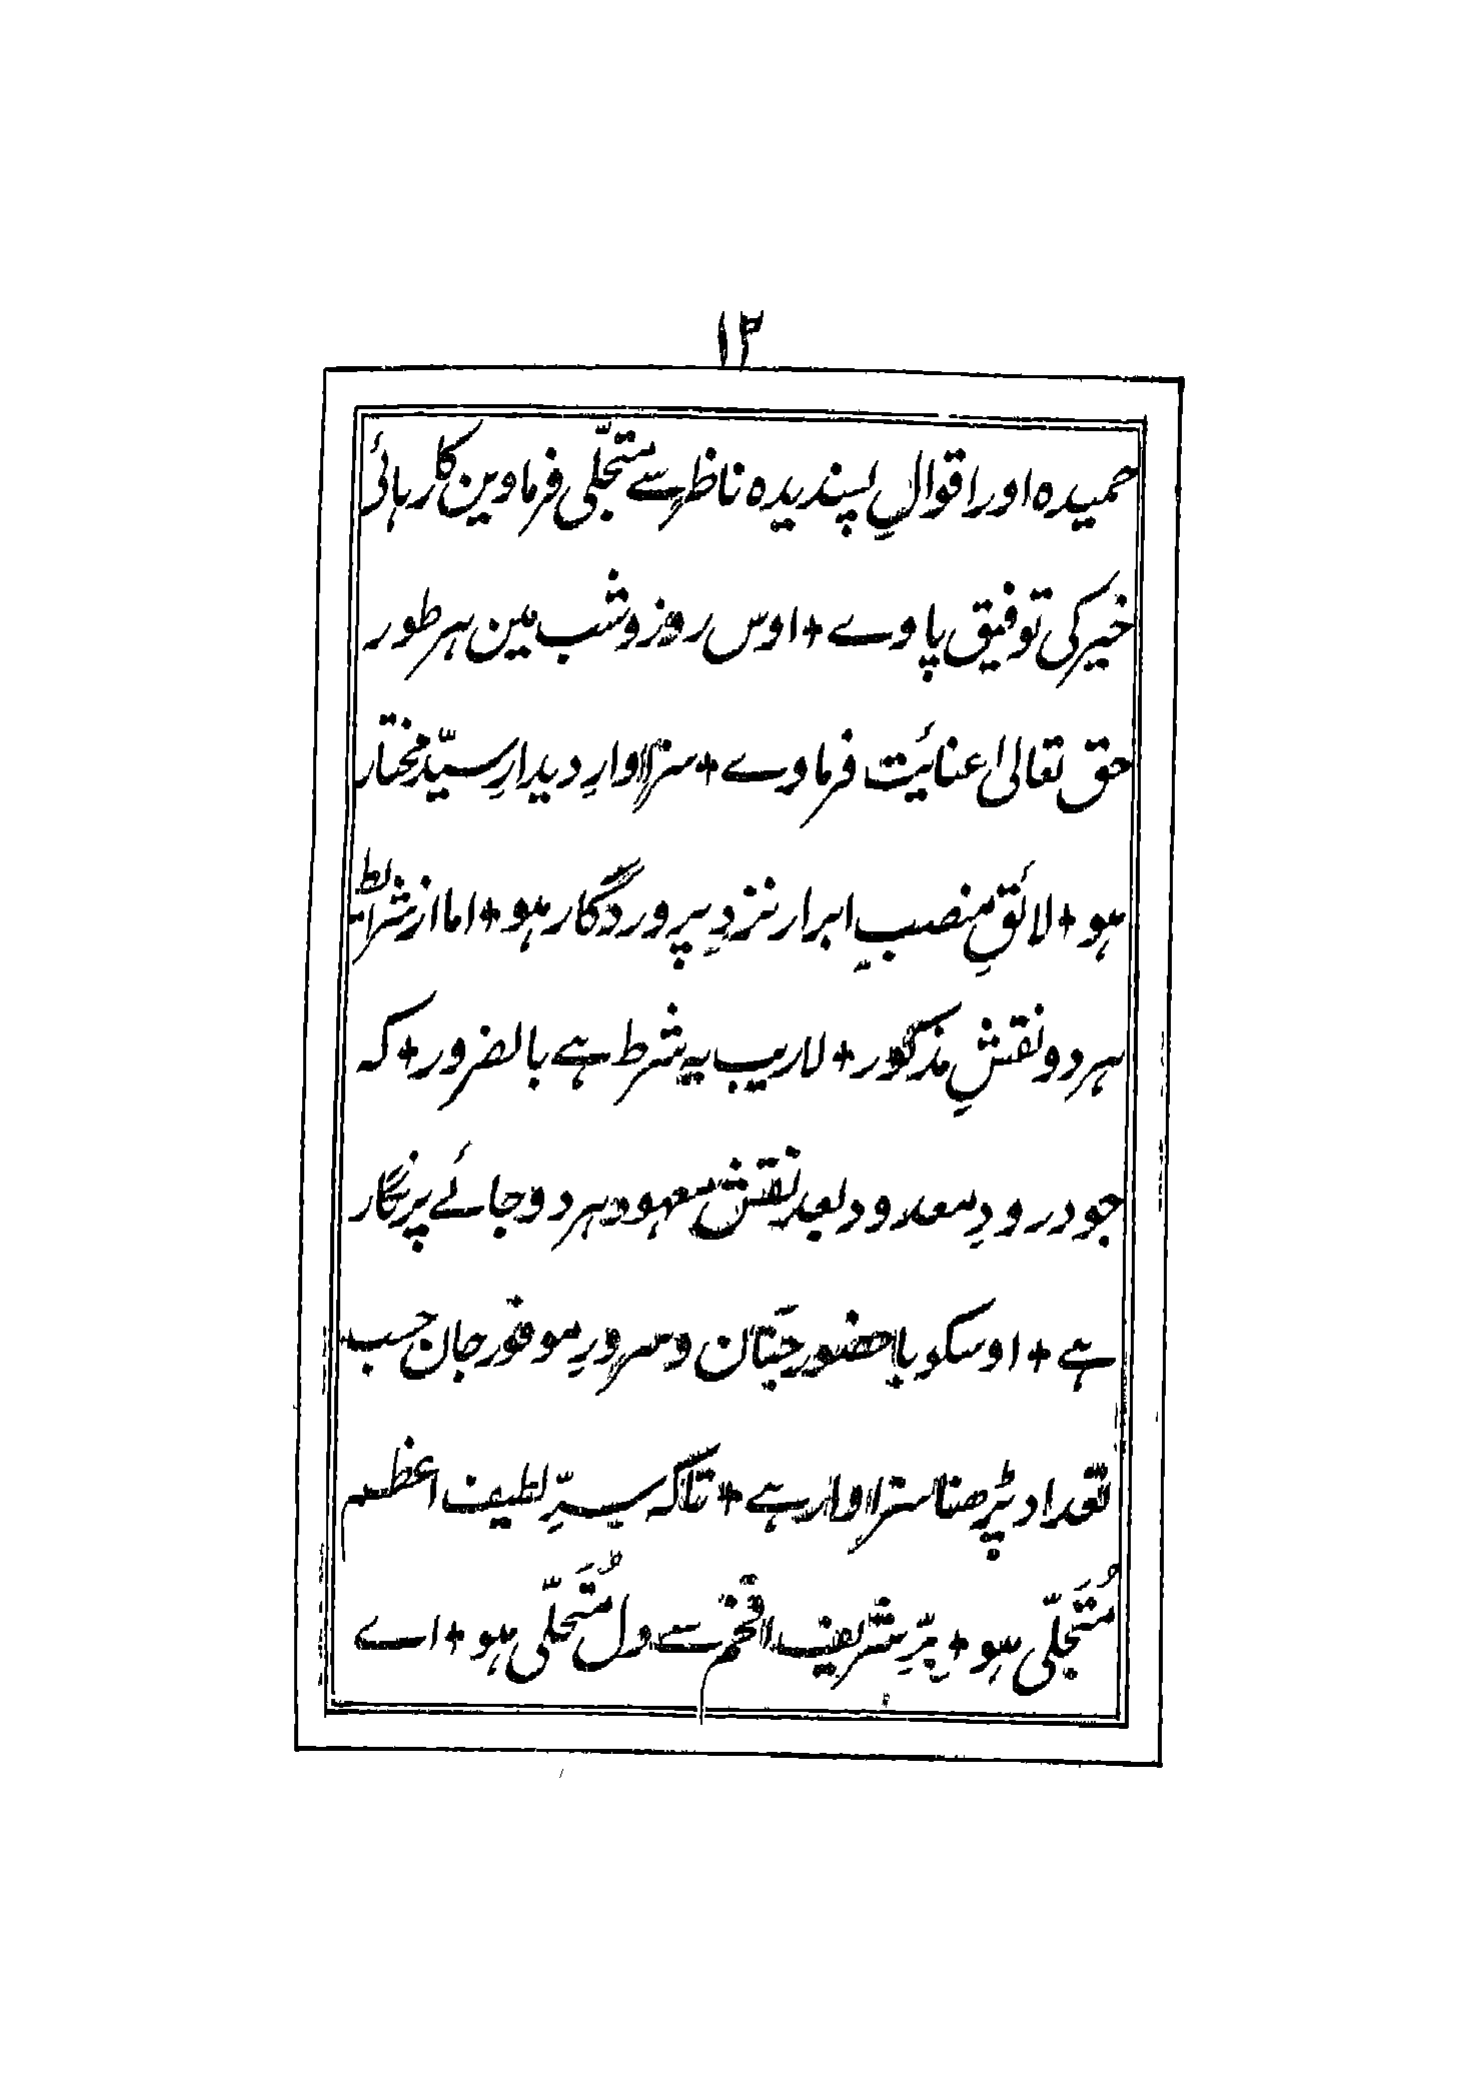 ۱۲
حمیدہ اور اقوالِ پسندیدہ ناظر سے متجلّی فرماوین کارہائی
خیر کی توفیق پاوے + اوس روز و شب مین ہر طور
حق تعالیٰ عنائیت فرماوے + سزاوارِ دیدارِ سیّد مختار
ہو + لائقِ منصبِ ابرار نزدِ پروردگار ہو + اما از شرائط
ہر دو نقشِ مذکور + لاریب یہ شرط ہے بالضرور + کہ
جو درودِ معدود بعد نقش معہود ہر دو جائے پر نگار
ہے + اوسکو باحضور جَنان و سرورِ موفور جان حسب
تعداد پڑھنا سزاوار ہے + تاکہ سرِّ لطیف اعظم
مُتَجلّی ہو + بِرِّ شریف افخم سے دل مُتَحلّی ہو + اے